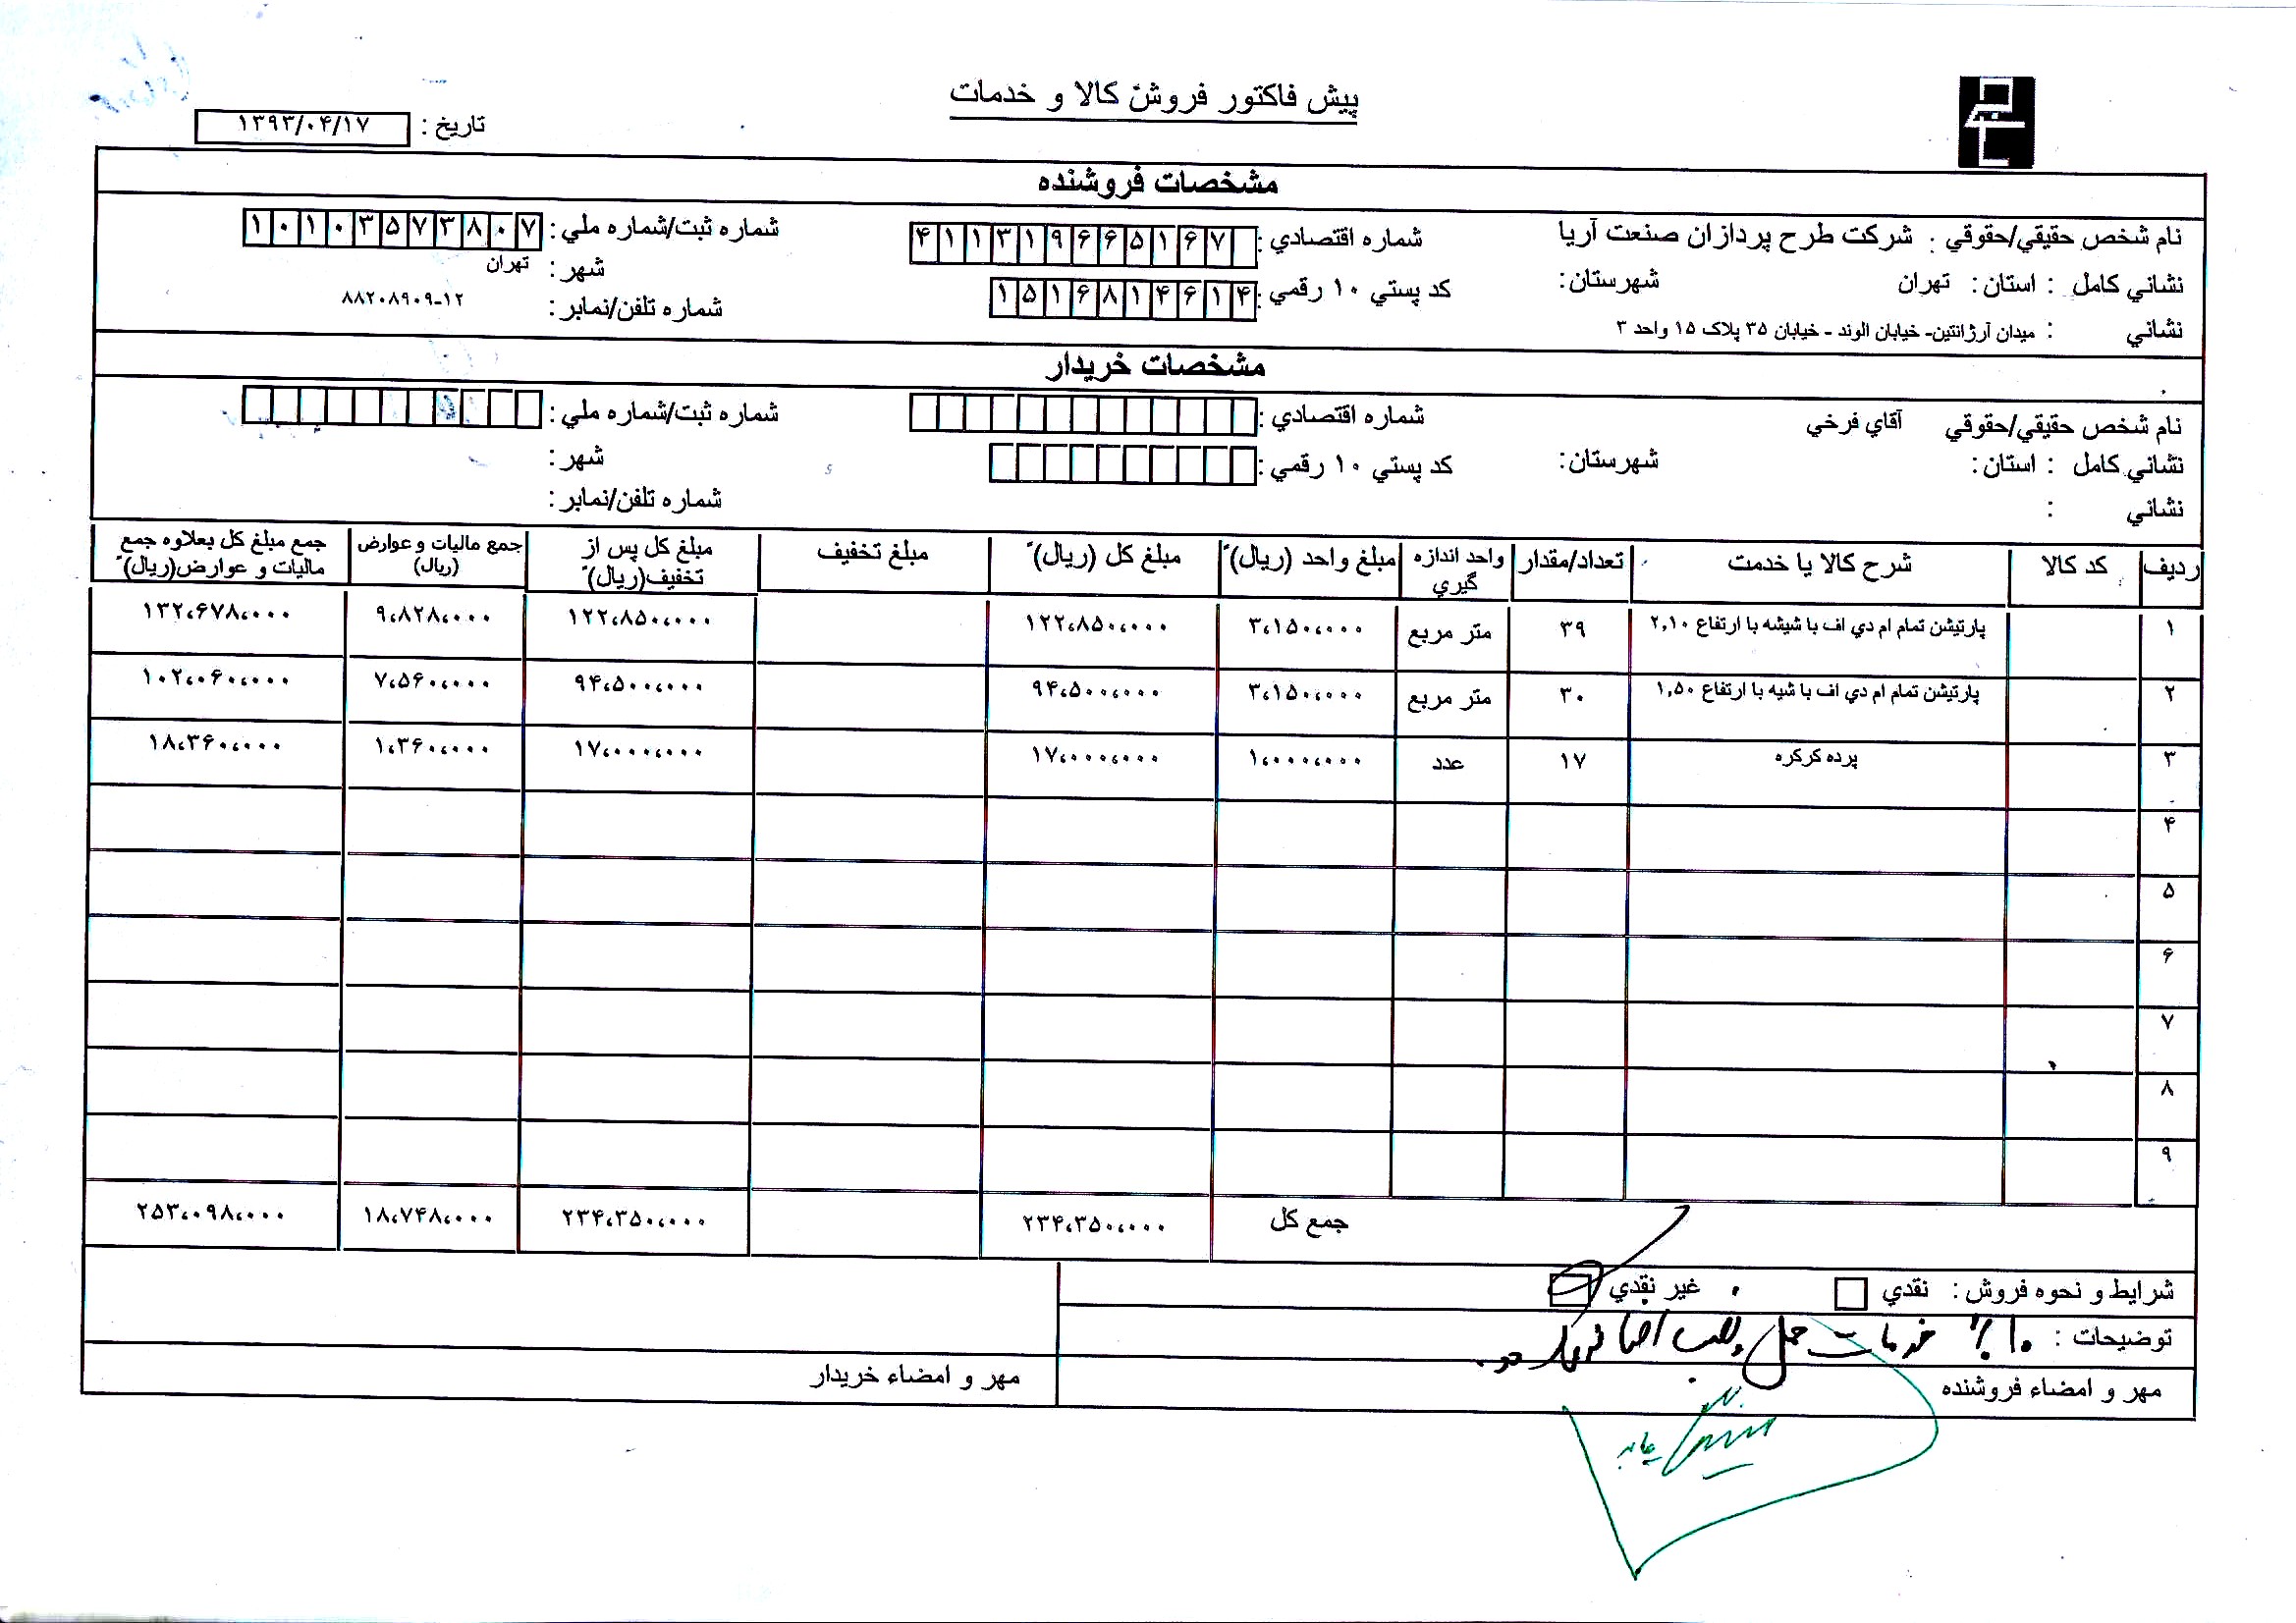 پيش فاكتور فروش كالا و خدمات
تاريخ : ۱۳۹۳/۰۴/۱۷
مشخصات فروشنده
نام شخص حقيقي/حقوقي : شركت طرح پردازان صنعت آريا شماره اقتصادي : ۴۱۱۳۱۹۶۶۵۱۶۷ شماره ثبت/شماره ملي : ۱۰۱۰۳۵۷۳۸۰۷
نشاني كامل : استان : تهران شهرستان: كد پستي ۱۰ رقمي : ۱۵۱۶۸۱۴۶۱۴ شهر : تهران
نشاني : ميدان آرژانتين- خيابان الوند - خيابان ۳۵ پلاک ۱۵ واحد ۳ شماره تلفن/نمابر : ۸۸۲۰۸۹۰۹-۱۲
مشخصات خريدار
نام شخص حقيقي/حقوقي آقاي فرخي شماره اقتصادي : شماره ثبت/شماره ملي :
نشاني كامل : استان : شهرستان: كد پستي ۱۰ رقمي : شهر :
نشاني : شماره تلفن/نمابر :
رديف كد كالا شرح كالا يا خدمت تعداد/مقدار واحد اندازه گيري مبلغ واحد (ريال) مبلغ كل (ريال) مبلغ تخفيف مبلغ كل پس از تخفيف(ريال) جمع ماليات و عوارض (ريال) جمع مبلغ كل بعلاوه جمع ماليات و عوارض(ريال)
۱ پارتيشن تمام ام دي اف با شيشه با ارتفاع ۲,۱۰ ۳۹ متر مربع ۳،۱۵۰،۰۰۰ ۱۲۲،۸۵۰،۰۰۰ ۱۲۲،۸۵۰،۰۰۰ ۹،۸۲۸،۰۰۰ ۱۳۲،۶۷۸،۰۰۰
۲ پارتيشن تمام ام دي اف با شيه با ارتفاع ۱,۵۰ ۳۰ متر مربع ۳،۱۵۰،۰۰۰ ۹۴،۵۰۰،۰۰۰ ۹۴،۵۰۰،۰۰۰ ۷،۵۶۰،۰۰۰ ۱۰۲،۰۶۰،۰۰۰
۳ پرده كركره ۱۷ عدد ۱،۰۰۰،۰۰۰ ۱۷،۰۰۰،۰۰۰ ۱۷،۰۰۰،۰۰۰ ۱،۳۶۰،۰۰۰ ۱۸،۳۶۰،۰۰۰
۴
۵
۶
۷
۸
۹
جمع كل ۲۳۴،۳۵۰،۰۰۰ ۲۳۴،۳۵۰،۰۰۰ ۱۸،۷۴۸،۰۰۰ ۲۵۳،۰۹۸،۰۰۰
شرايط و نحوه فروش : نقدي غير نقدي
توضيحات : ۱۰٪ خدمات حمل و نصب
مهر و امضاء فروشنده مهر و امضاء خريدار